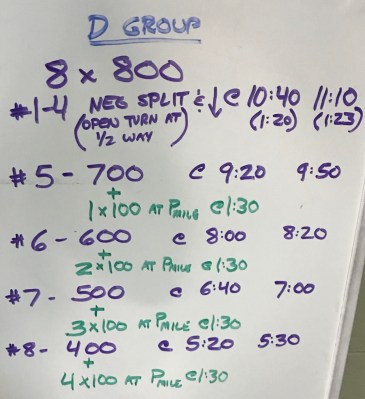 D GROUP
8 x 800
#1-4 NEG SPLIT & ↓ @ 10:40 11:10
(OPEN TURN AT 1/2 WAY) (1:20) (1:23)
#5 - 700 @ 9:20 9:50
+
1x100 AT PMILE @1:30
#6 - 600 @ 8:00 8:20
+
2x100 AT PMILE @1:30
#7 - 500 @ 6:40 7:00
+
3x100 AT PMILE @1:30
#8 - 400 @ 5:20 5:30
+
4x100 AT PMILE @1:30